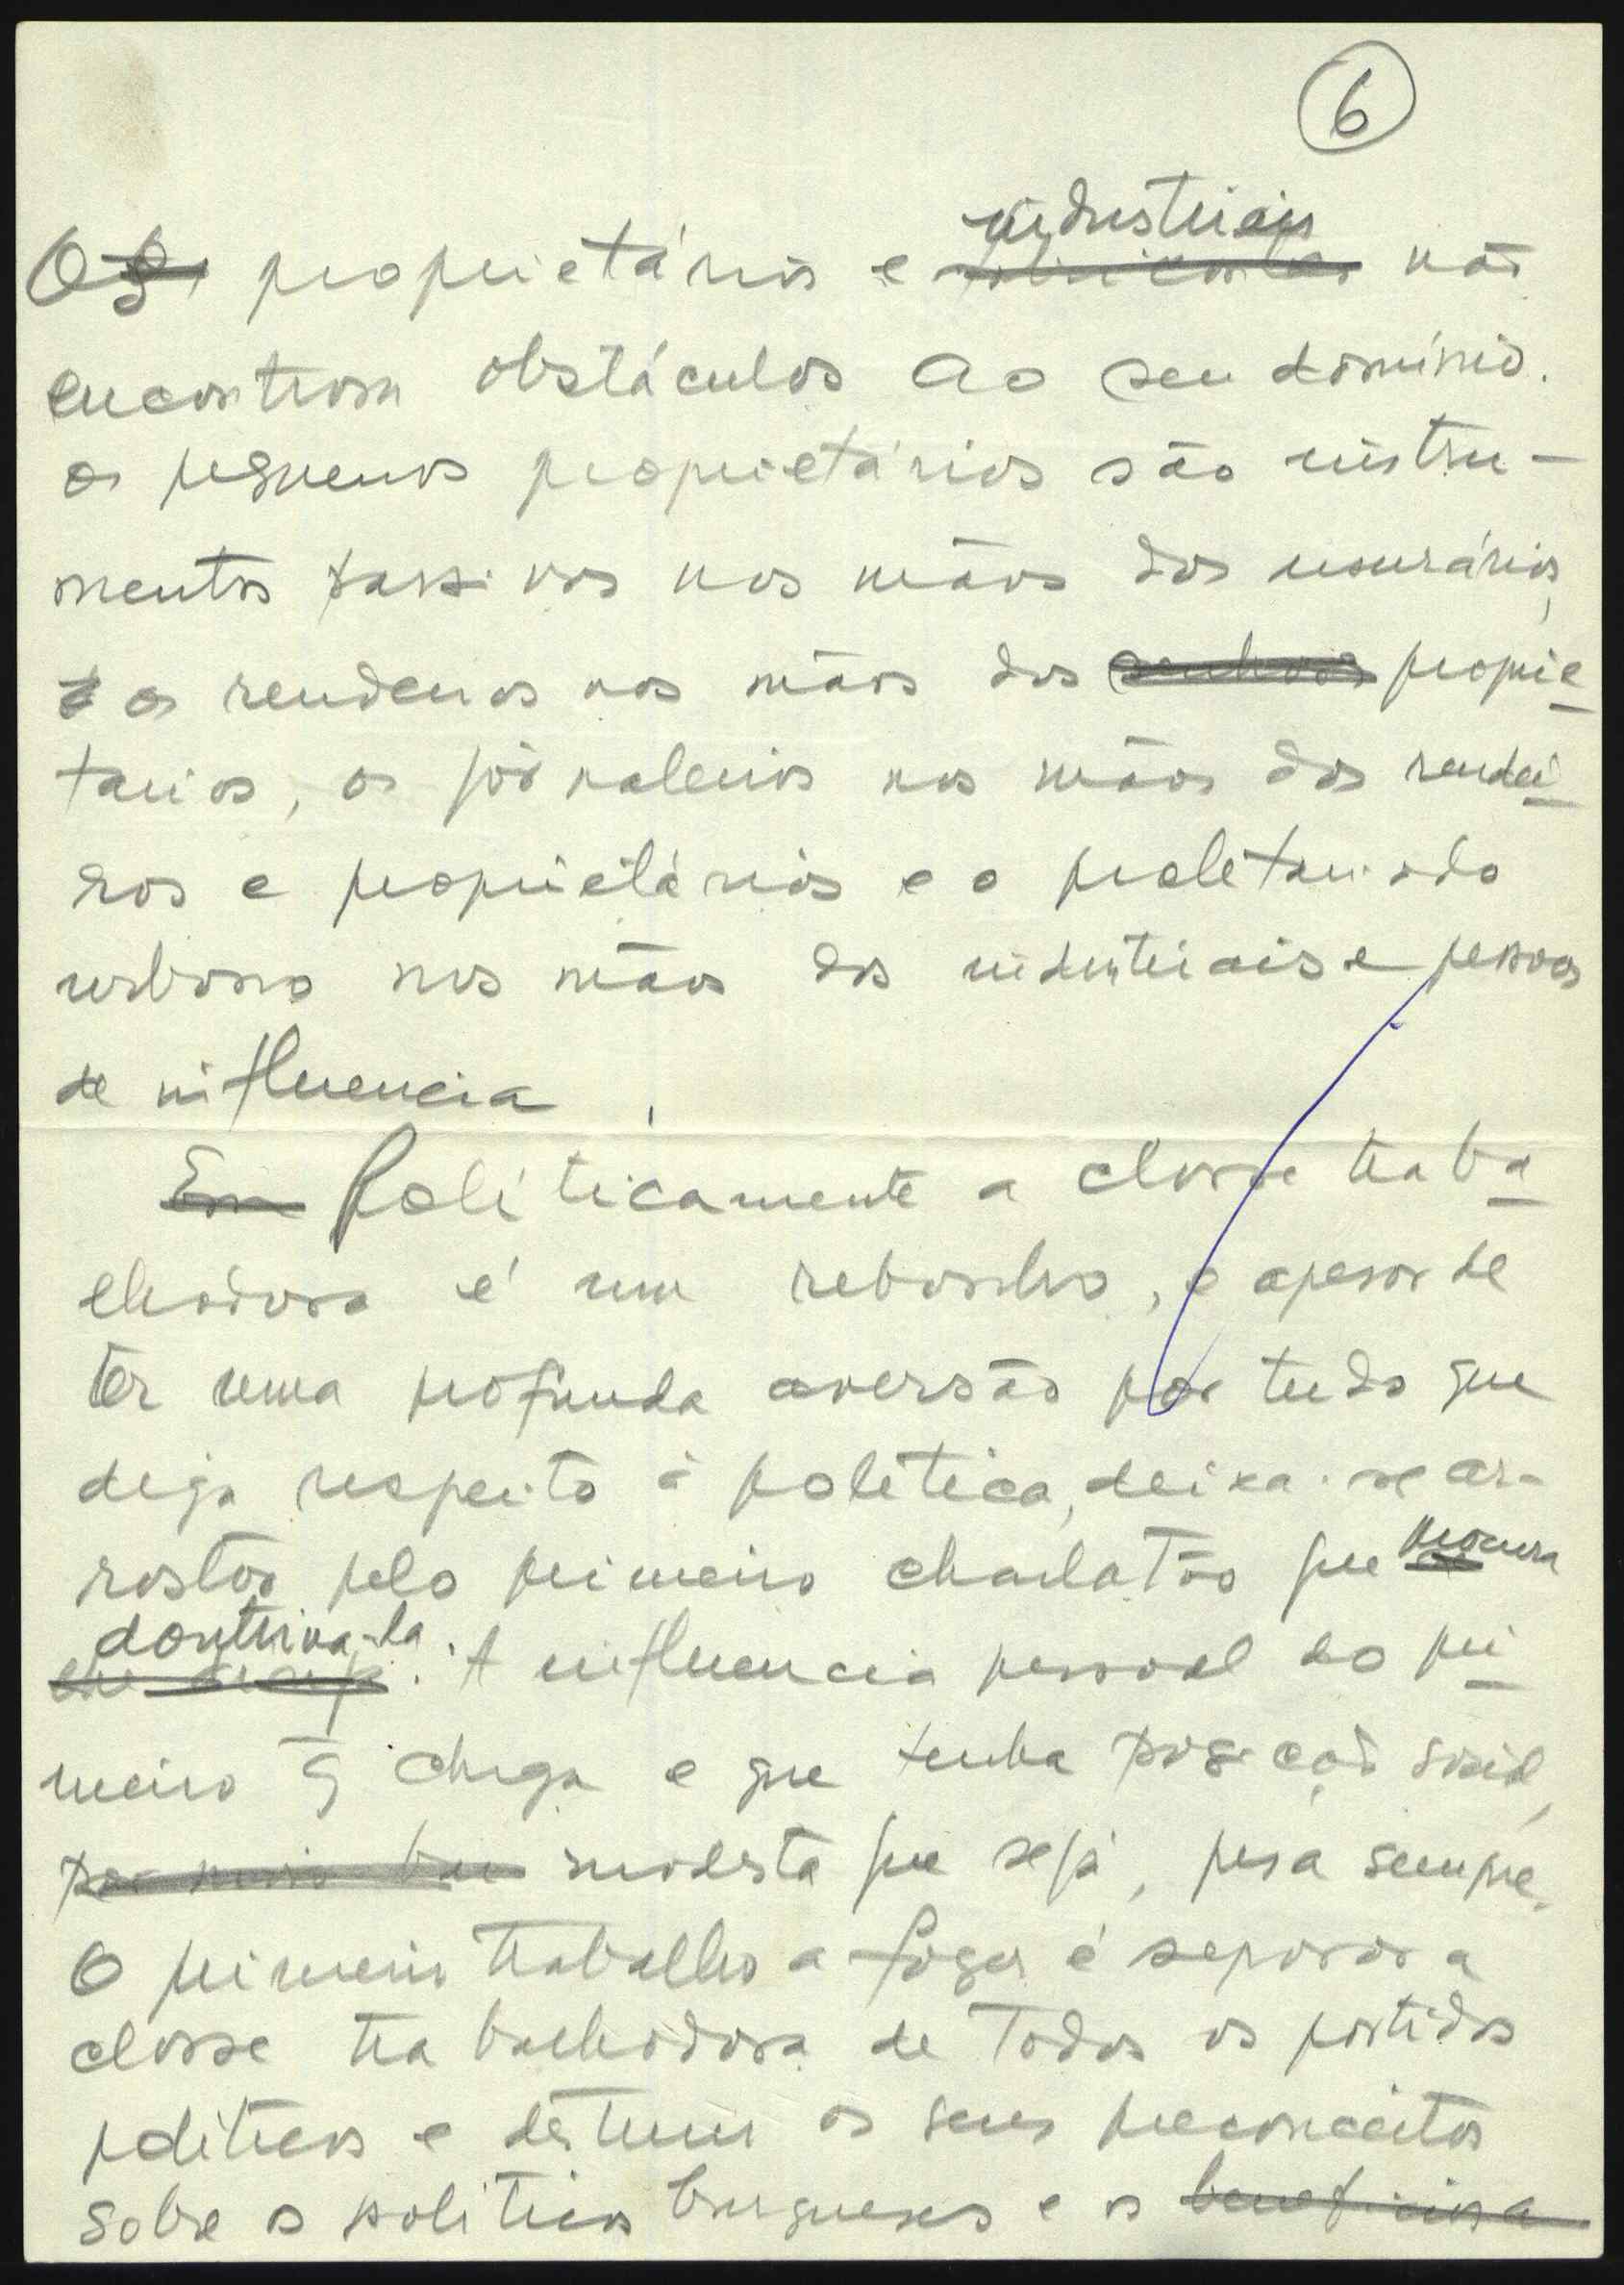 6
industriais
Os proprietários e fabricantes não
encontram obstáculos ao seu domínio.
os pequenos proprietários são instru-
mentos passivos nas mãos dos usurários,
e os rendeiros nas mãos dos senhores proprie
tarios, os jornaleiros nas mãos dos rendei
ros e proprietários e o proletariado
urbano nas mãos dos industriais e pessoas
de influencia.
Em Políticamente a classe traba
lhadora é um rebanho, e apesar de
ter uma profunda aversão por tudo que
diga respeito à política, deixa-se ar-
rastar pelo primeiro charlatão que procura
doutrina-la
. A influencia pessoal do pri
meiro q̃ chega e que tenha posição social,
por mais modesta que seja, pesa sempre.
O primeiro trabalho a fazer é separar a
classe trabalhadora de todos os partidos
politicos e destruir os seus preconceitos
sobre os politicos burgueses e os